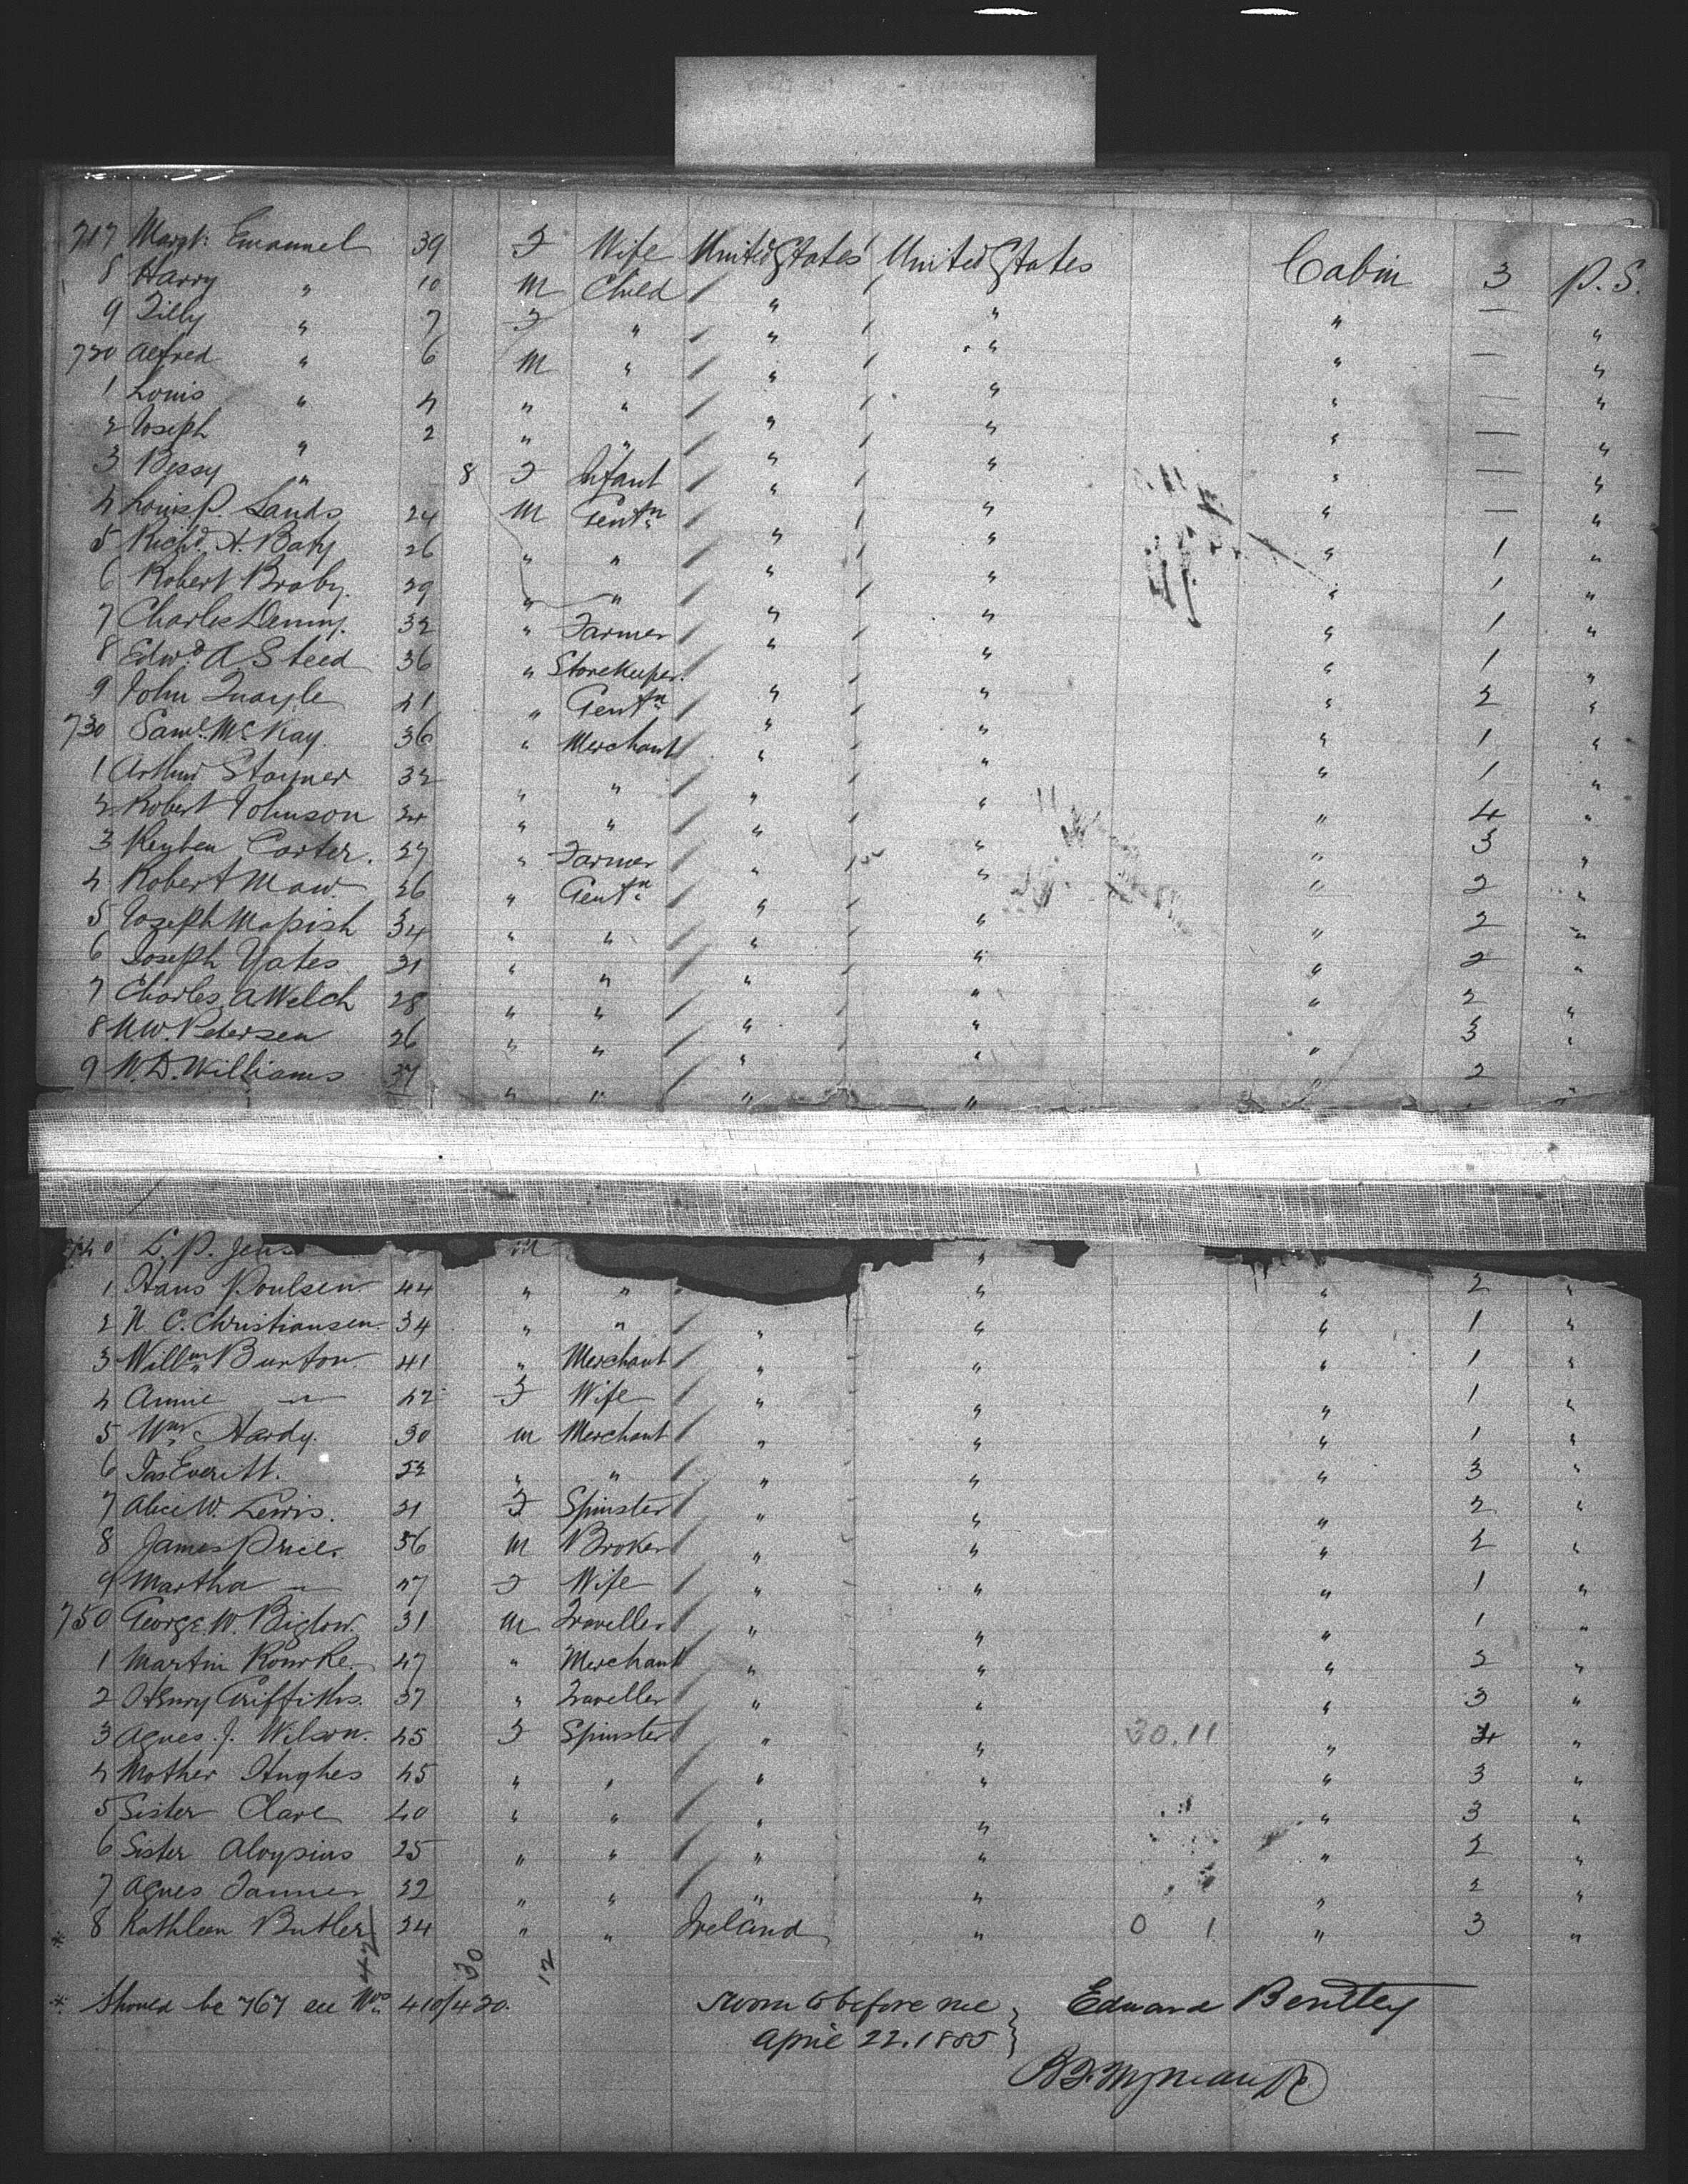 717 Margt: Emanuel 39 F Wife United States United States Cabin 3 P.S.
8 Harry " 10 M Child " " " — "
9 Tilly " 7 F " " " " — "
720 Alfred " 6 M " " " " — "
1 Louis " 4 " " " " " — "
2 Joseph " 2 " " " " " — "
3 Bessy " 8 F Infant " " " — "
4 Louis P. Sands 24 M Gentn " " " 1 "
5 Richd. A. Baty 26 " " " " " 1 "
6 Robert Braby. 29 " " " " " 1 "
7 Charles Denny. 32 " Farmer " " " 1 "
8 Edwd. A Steed 36 " Storekeeper. " " " 2 "
9 John Quayle 41 " Gentn " " " 1 "
730 Saml. McKay. 36 " Merchant " " " 1 "
1 Arthur Stayner 32 " " " " " 4 "
2 Robert Johnson " " " " " 3 "
3 Reuben Carter. 27 " Farmer " " " 2 "
4 Robert Maw 26 " Gentn " " " 2 "
5 Joseph 34 " " " " " 2 "
6 Joseph Yates 21 " " " " " 2 "
7 Charles A Welch 28 " " " " " 3 "
8 N.W. Petersen 26 " " " " " 2 "
9 W.D. Williams " " " " "
740 L. P. Jens M "
1 Hans Poulsen 44 " " " " 2 "
2 N C. Christiansen 34 " " " " " 1 "
3 Willm Burton. 41 " Merchant " " " 1 "
4 Annie — 42 F Wife " " " 1 "
5 Wm Hardy. 30 M Merchant " " " 1 "
6 Jas Everitt. 52 " " " " " 3 "
7 Alice W. Lewis. 21 F Spinster " " " 2 "
8 James Price. 56 M Broker " " " 2 "
9 Martha — 47 F Wife " " " 1 "
750 George W. Biglow. 31 M Traveller " " " 1 "
1 Martin Rourke. 47 " Merchant " " " 2 "
2 Henry Griffiths. 37 " Traveller " " " 3 "
3 Agnes. J. Wilson. 45 F Spinster " " 30.11 " "
4 Mother Hughes 45 " " " " " 3 "
5 Sister Clare 40 " " " " " 3 "
6 Sister Aloysius 25 " " " " " 2 "
7 Agnes Tanner 22 " " " " " 2 "
* 8 Kathleen Butler 24 " " Ireland " 0 1 " 3 "
42 30 12
* Should be 767 see Nos 410/420.
Sworn to before me
April 22. 1885
Edward Bentley